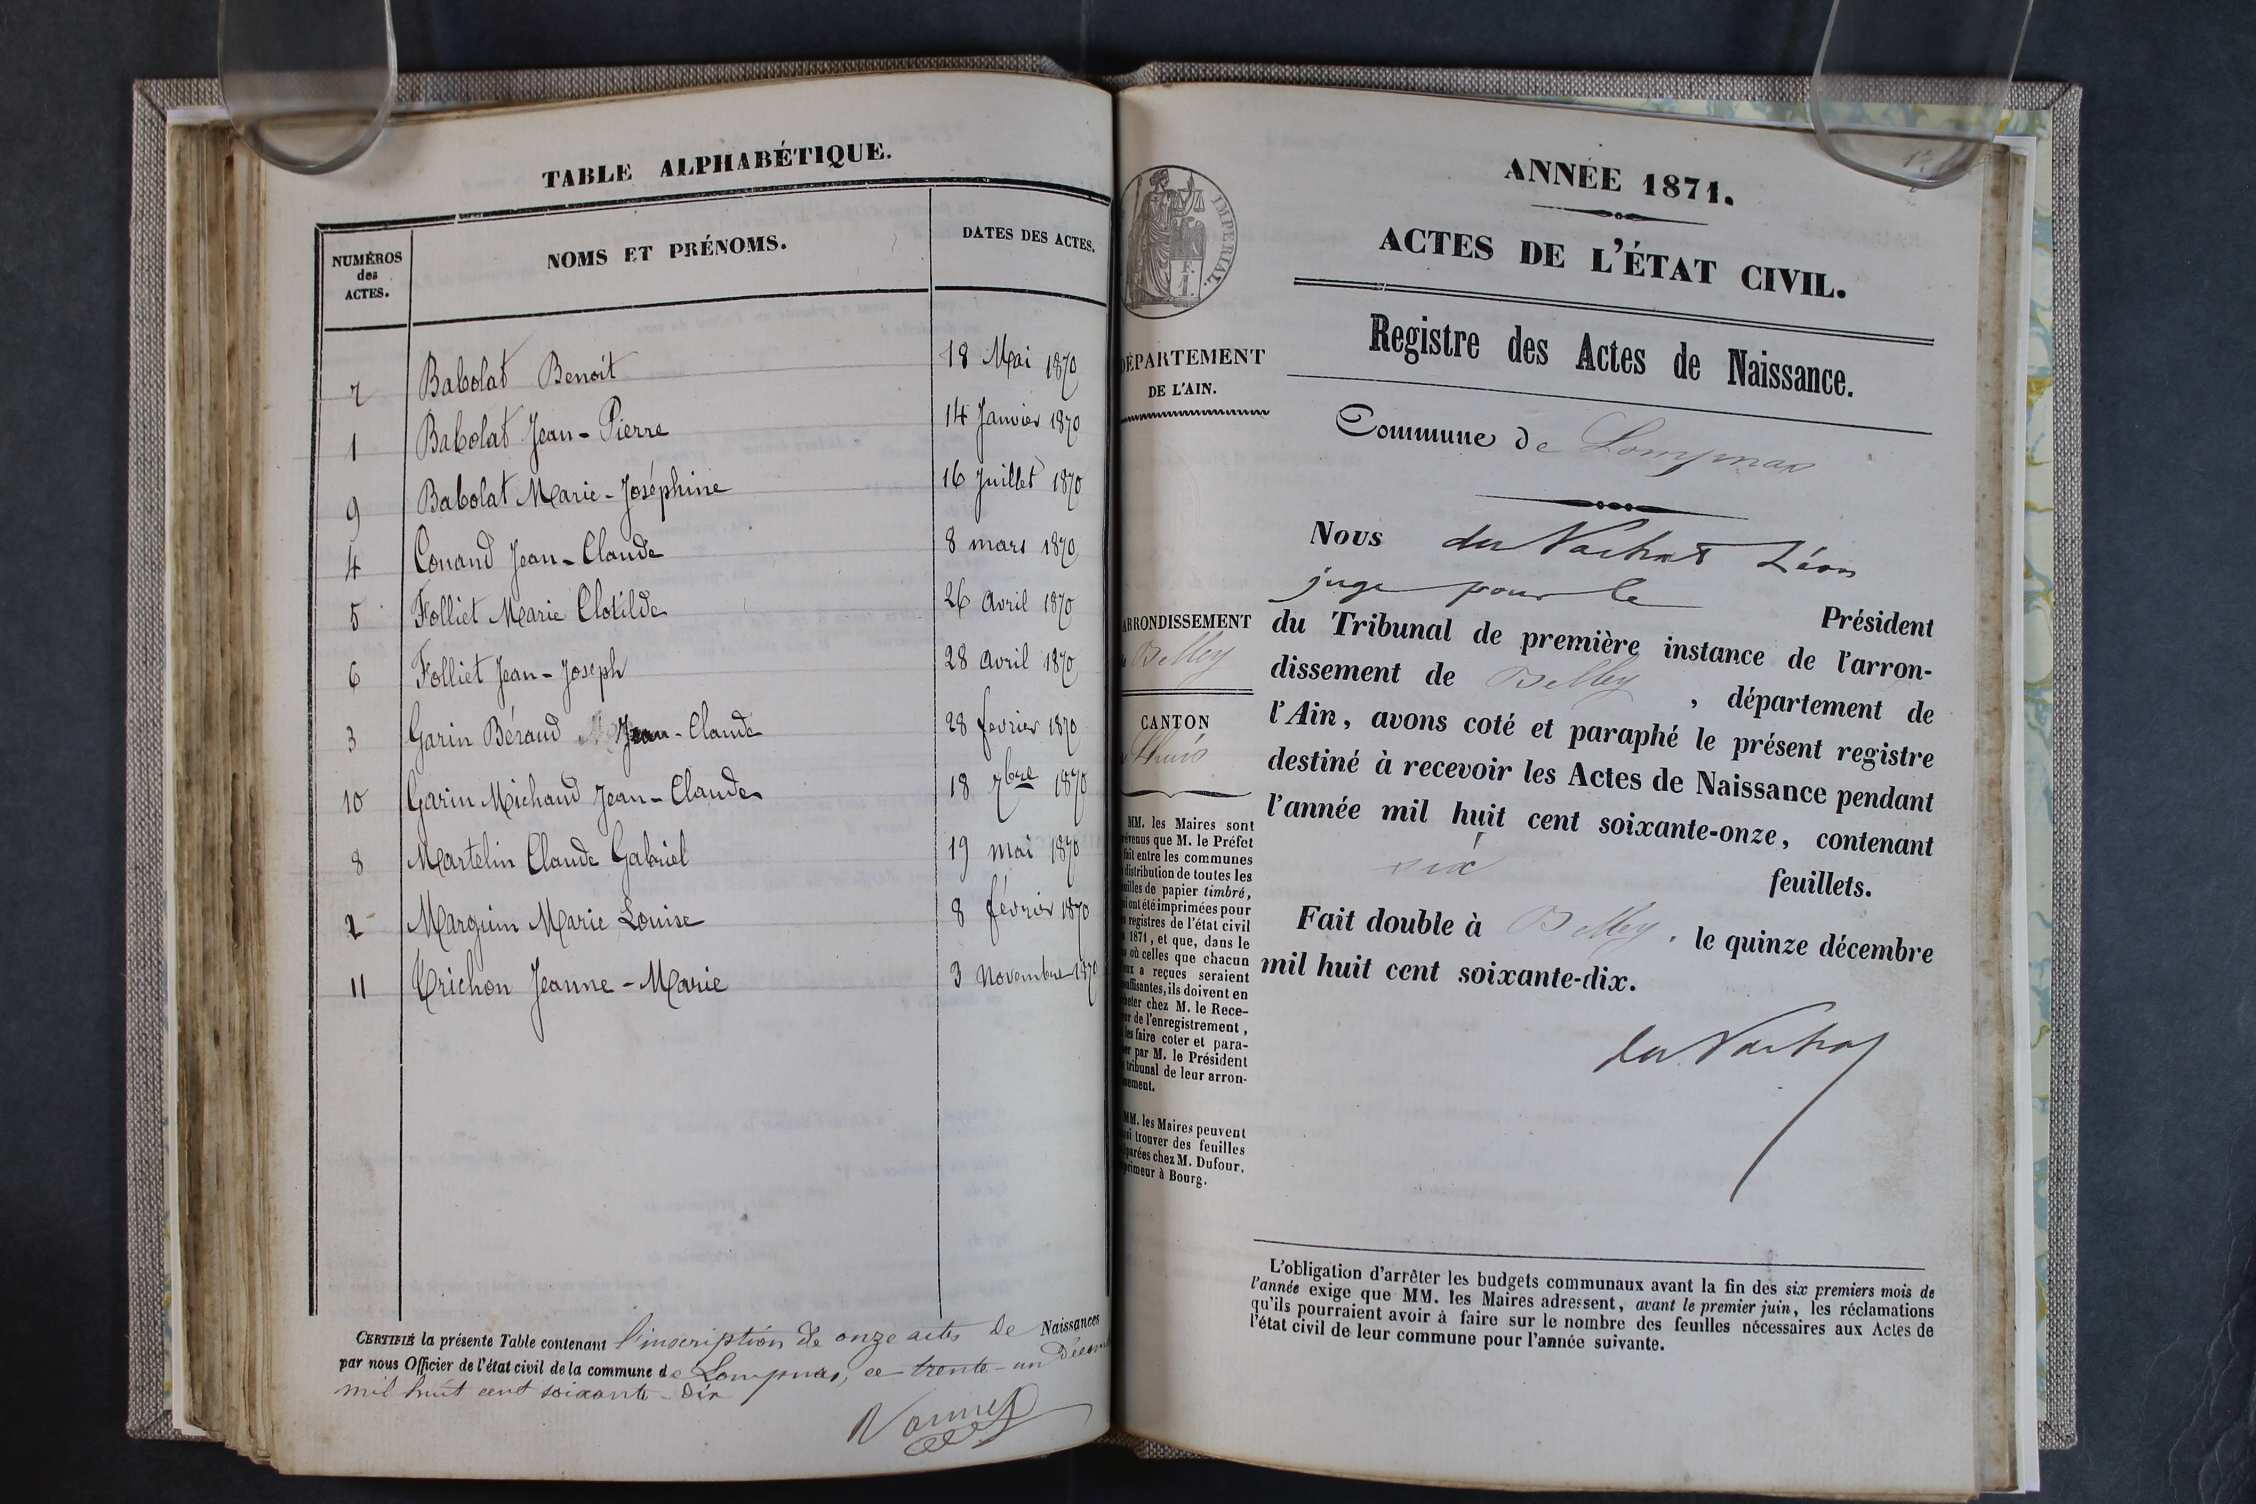 TABLE ALPHABÉTIQUE.
NUMÉROS des ACTES. NOMS ET PRÉNOMS. DATES DES ACTES.
7 Babolat Benoit 18 Mai 1870
1 Babolat Jean-Pierre 14 Janvier 1870
9 Babolat Marie-Joséphine 16 Juillet 1870
4 Conand Jean-Claude 8 mars 1870
5 Folliet Marie Clotilde 26 avril 1870
6 Folliet Jean-Joseph 28 avril 1870
3 Garin Béraud Jean-Claude 28 fevrier 1870
10 Garin Michaud Jean-Claude 18 7bre 1870
8 Martelin Claude Gabriel 19 mai 1870
2 Marguin Marie Louise 8 février 1870
11 Trichon Jeanne-Marie 3 Novembre 1870
CERTIFIÉ la présente Table contenant l'inscription de onze actes de Naissances
par nous Officier de l'état civil de la commune de Lompnas, ce trente-un Décembre
mil huit cent soixante-dix
ANNÉE 1871.
ACTES DE L'ÉTAT CIVIL.
Registre des Actes de Naissance.
IMPÉRIAL.
DÉPARTEMENT
DE L'AIN.
Commune de Lompnas
Nous Léon
juge pour le Président
du Tribunal de première instance de l'arron-
dissement de Belley, département de
l'Ain, avons coté et paraphé le présent registre
destiné à recevoir les Actes de Naissance pendant
l'année mil huit cent soixante-onze, contenant
six feuillets.
Fait double à Belley, le quinze décembre
mil huit cent soixante-dix.
ARRONDISSEMENT
Belley
CANTON
lhuis
MM. les Maires sont
prévenus que M. le Préfet
fait entre les communes
distribution de toutes les
feuilles de papier timbré,
qui ont été imprimées pour
registres de l'état civil
1871, et que, dans le
où celles que chacun
a reçues seraient
insuffisantes, ils doivent en
acheter chez M. le Rece-
veur de l'enregistrement,
les faire coter et para-
pher par M. le Président
tribunal de leur arron-
dissement.
MM. les Maires peuvent
aussi trouver des feuilles
séparées chez M. Dufour,
imprimeur à Bourg.
L'obligation d'arrêter les budgets communaux avant la fin des six premiers mois de
l'année exige que MM. les Maires adressent, avant le premier juin, les réclamations
qu'ils pourraient avoir à faire sur le nombre des feuilles nécessaires aux Actes de
l'état civil de leur commune pour l'année suivante.